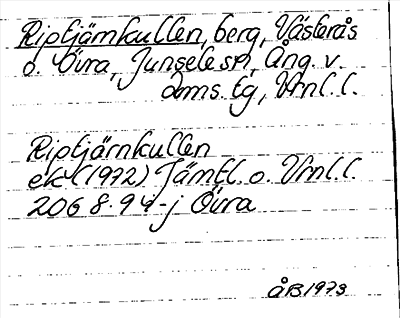 Riptjärnkullen, berg, Västerås
o. Övra, Junsele sn, Ång. v.
doms. tg, Vrnl. l.
Riptjärnkullen
ek (1972) Jämtl. o. Vrnl. l.
206 8·94-j Övra
ÅB 1973